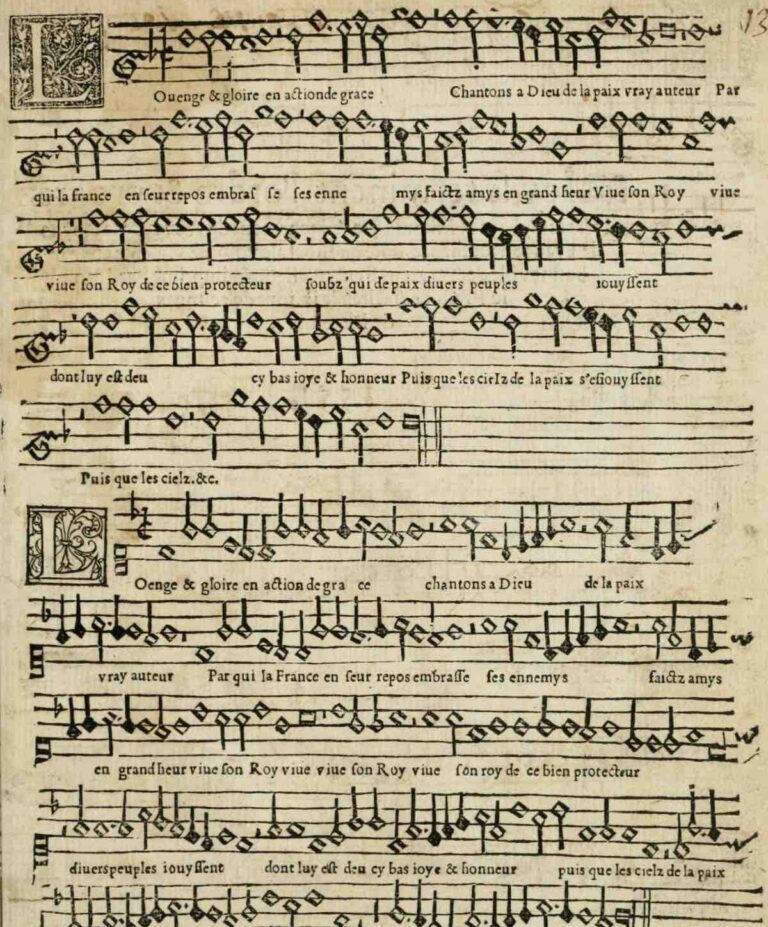 13
LOuenge & gloire en actionde grace Chantons a Dieu de la paix vray auteur Par
qui la france en seur repos embras se ses enne mys faictz amys en grand heur Viue son Roy viue
viue son Roy de ce bien protecteur soubz qui de paix diuers peuples iouyssent
dont luy est deu cy bas ioye & honneur Puis que les cielz de la paix s'esiouyssent
Puis que les cielz. &c.
LOenge & gloire en action de gra ce chantons a Dieu de la paix
vray auteur Par qui la France en seur repos embrasse ses ennemys faictz amys
en grand heur viue son Roy viue viue son Roy viue son roy de ce bien protecteur
diuers peuples iouyssent dont luy est deu cy bas ioye & honneur puis que les cielz de la paix